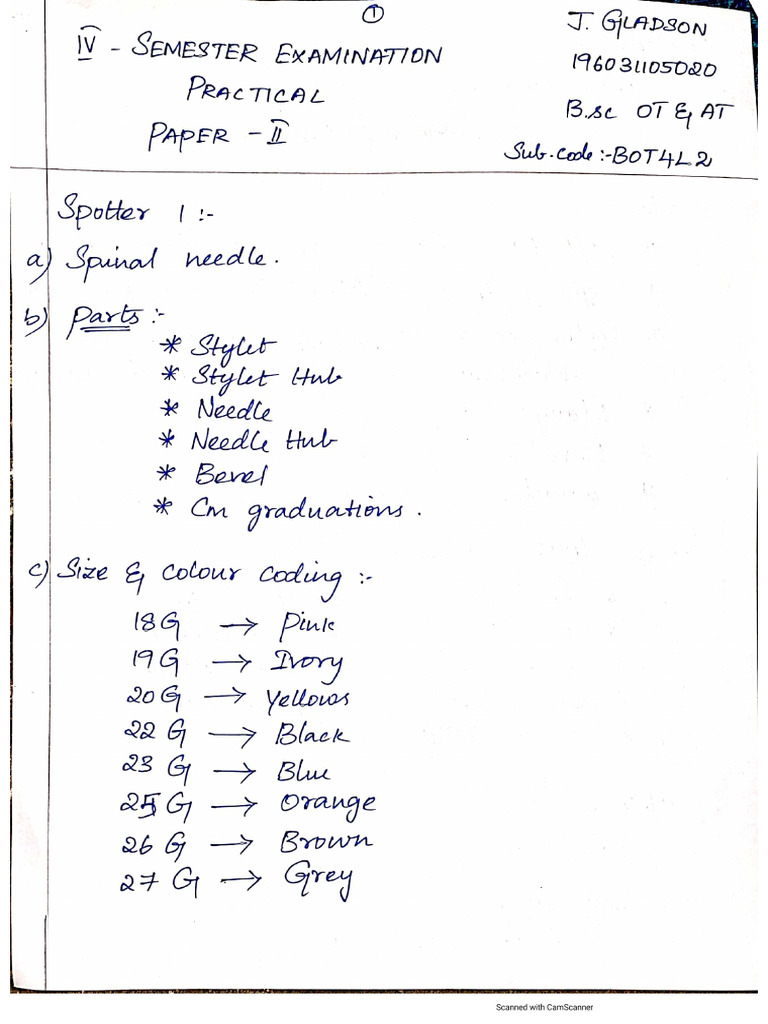 1
IV - SEMESTER EXAMINATION
PRACTICAL
PAPER - II
J. GLADSON
196031105020
B.sc OT & AT
Sub.code :- BOT4L2
Spotter 1 :-
a) Spinal needle.
b) Parts :-
* Stylet
* Stylet Hub
* Needle
* Needle Hub
* Bevel
* Cm graduations.
c) Size & colour coding :-
18G → Pink
19G → Ivory
20G → Yellows
22 G → Black
23 G → Blue
25 G → Orange
26 G → Brown
27 G → Grey
Scanned with CamScanner